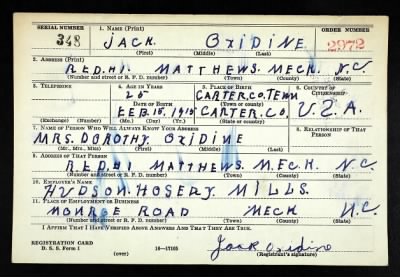 SERIAL NUMBER 1. NAME (Print) ORDER NUMBER
348 JACK OXIDINE 2972
(First) (Middle) (Last)
2. ADDRESS (Print)
R.F.D.#1. MATTHEWS. MECK. N.C.
(Number and street or R. F. D. number) (Town) (County) (State)
3. TELEPHONE 4. AGE IN YEARS 5. PLACE OF BIRTH 6. COUNTRY OF CITIZENSHIP
CARTER.CO.TENN
DATE OF BIRTH
FEB.15, CARTER.CO. U.S.A.
(Exchange) (Number) (Mo.) (Day) (Yr.) (State or country)
7. NAME OF PERSON WHO WILL ALWAYS KNOW YOUR ADDRESS 8. RELATIONSHIP OF THAT PERSON
MRS. DOROTHY. OXIDINE
(Mr., Mrs., Miss) (First) (Middle) (Last)
9. ADDRESS OF THAT PERSON
R.F.D.#1 MATTHEWS. MECK. N.C.
(Number and street or R. F. D. number) (Town) (County) (State)
10. EMPLOYER'S NAME
HUDSON. HOSERY. MILLS.
11. PLACE OF EMPLOYMENT OR BUSINESS
MONROE ROAD MECK N.C.
(Number and street or R. F. D. number) (Town) (County) (State)
I AFFIRM THAT I HAVE VERIFIED ABOVE ANSWERS AND THAT THEY ARE TRUE.
REGISTRATION CARD
D. S. S. Form 1 16—17105 Jack Oxidine
(over) (Registrant's signature)